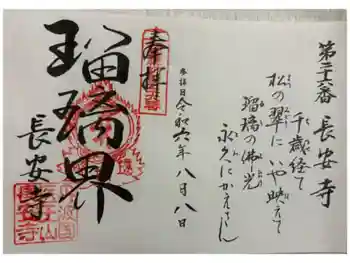 第二十六番 長安寺
千歳経て
松の翠に いや映えて
瑠璃の佛光
永久にかえさん
参詣日 令和六年 八月 八日
奉拝
瑠璃界
長安寺